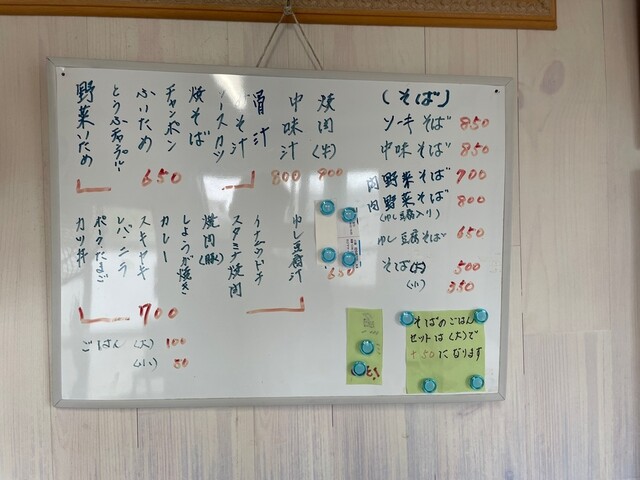 (そば)
ソーキそば 850
中味そば 850
肉野菜そば 700
肉野菜そば 800
(ゆし豆腐入り)
ゆし豆腐そば 650
そば(大) 500
(小) 350
焼肉(牛) 900
中味汁 800
骨汁
みそ汁
ソースカツ
焼そば
チャンポン
ふいため
とうふチャンプルー
野菜いため
650
ゆし豆腐汁
イナムドチ
スタミナ焼肉
焼肉(豚)
しょうが焼き
カレー
スキヤキ
レバニラ
ポークたまご
カツ丼
700
ごはん (大) 100
(小) 50
そばのごはん
セットは(大)で
+50になります